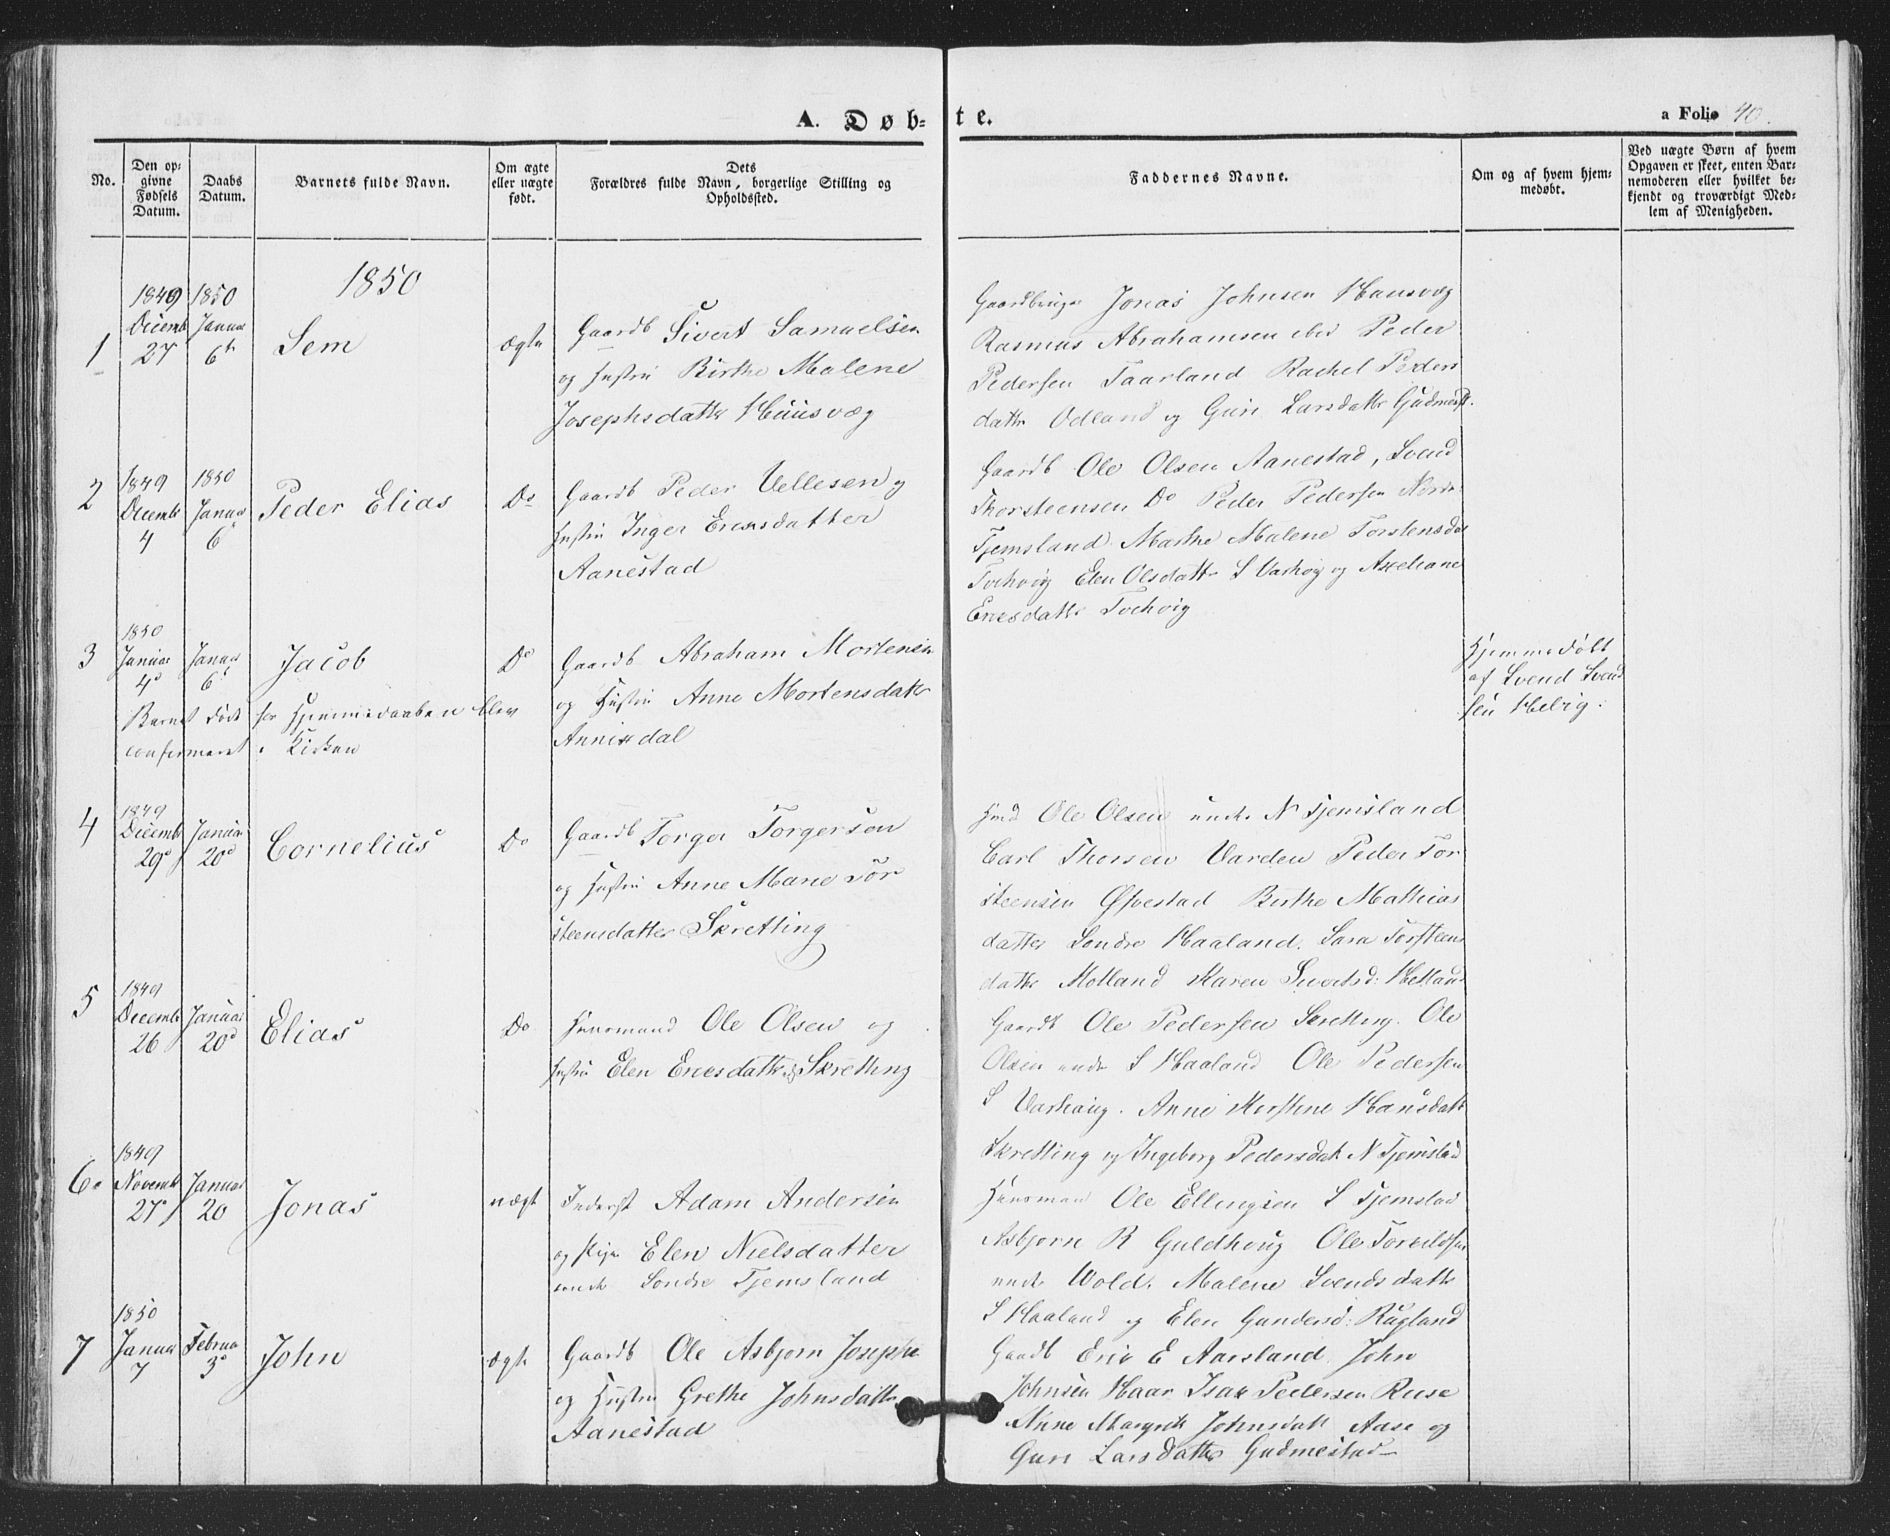 A. Døb=te.
a Folio 40.
No.
Den op=
givne
Fødsels
Datum.
Daabs
Datum.
Barnets fulde Navn.
Om ægte
eller uægte
født.
Dets
Forældres fulde Navn, borgerlige Stilling og
Opholdssted.
Faddernes Navne.
Om og af hvem hjem=
medøbt.
Ved uægte Børn af hvem
Opgaven er skeet, enten Bar=
nemoderen eller hvilket be=
kjendt og troværdigt Med=
lem af Menigheden.
1850
1
1849
Decemb
27
1850
Januar
6t
Sem
ægte
Gaardb Sivert Samuelsen
og Hustru Birthe Malene
Josephsdatter Huusvæg
Gaardbruger Jonas Johnsen Hausvæg
Rasmus Abrahamsen Peder
Pedersen Taarland Rachel Peders
datter Odland og Guri Larsdatter Gudmest.
2
1849
Decembr
4
1850
Januar
6
Peder Elias
Do
Gaardb Peder Vellesen og
Hustru Inger Enersdatter
Aanestad
Gaardb Ole Olsen Aanestad, Svend
Thorsteensen Do Peder Pedersen Nordr
Tjemsland Marthe Malene Torstensda
Elen Olsdatter S Varhoug og
3
1850
Januar
4d
Januar
6
Jacob
Do
Gaardb Abraham Mortensen
og Hustru Anne Mortensdatter
Annisdal
Hjemmedøbt
af Svend Svend
sen Helvig.
Barnet død før Hjemmedaaben blev
confirmeret i Kirken
4
1849
Decemb
29d
Januar
20d
Cornelius
Do
Gaardb Torger Torgersen
og Hustru Anne Marie Tor
steensdatter Skretting
Ole Olsen under N Tjemsland
Carl Thorsen Varden Peder Tor
steensen Øvestad Birthe Mathias
datter Søndre Haaland. Sara Torsteens
datter Molland Karen Sivertsd: Hetland
5
1849
Decemb
26
Januar
20d
Elias
Do
Huusmand Ole Olsen og
Hustru Elen Eriesdatter Skretting
Gaardb Ole Pedersen Skretting. Ole
Olsen under S Haaland Ole Pedersen
S Varhoug. Anne Kirstine Hansdatt
Skretting og Ingeborg Pedersdatt N Tjemslad
6.
1849
Novemb
27
Januar
20
Jonas
uægt
Inderst Adam Andersen
og Pige Elen Nielsdatter
under Søndre Tjemsland
Huusman Ole Ellingsen S Tjemslad
Asbjørn R Guldhoug Ole
under Wold. Malene Svendsdatter
S Haaland og Elen Gundersd: Rugland
7
1850
Januar
7
Februar
3d
John
ægte
Gaardb Ole Asbjørn Josephs
og Hustru Grethe Johnsdatter
Aanestad
Gaardb Eric E Aarsland. John
Johnsen Haar Isak Pedersen Ruse
Anne Margrete Johnsdatt Aase og
Guri Larsdatter Gudmestad